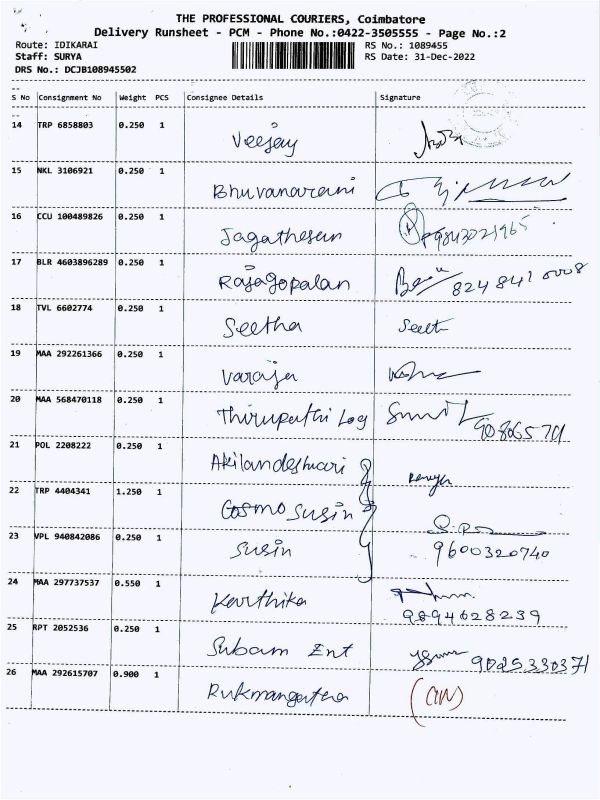 THE PROFESSIONAL COURIERS, Coimbatore
Delivery Runsheet - PCM - Phone No.:0422-3505555 - Page No.:2
Route: IDIKARAI RS No.: 1089455
Staff: SURYA RS Date: 31-Dec-2022
DRS No.: DCJB108945502
S No Consignment No Weight PCS Consignee Details Signature
14 TRP 6858803 0.250 1 Veejay
15 NKL 3106921 0.250 1 Bhuvanarani
16 CCU 100489826 0.250 1 Jagathesan 9843021965
17 BLR 4603896289 0.250 1 Rajagopalan 8248410008
18 TVL 6602774 0.250 1 Seetha Seeth
19 MAA 292261366 0.250 1 Varaja
20 MAA 568470118 0.250 1 Thirupathi Log
21 POL 2208222 0.250 1 Akilandeshwari
22 TRP 4404341 1.250 1 Cosmo Susin
23 VPL 940842086 0.250 1 Susin 9600320740
24 MAA 297737537 0.550 1 Karthika
9894628239
25 RPT 2052536 0.250 1 Subam Ent
26 MAA 292615707 0.900 1